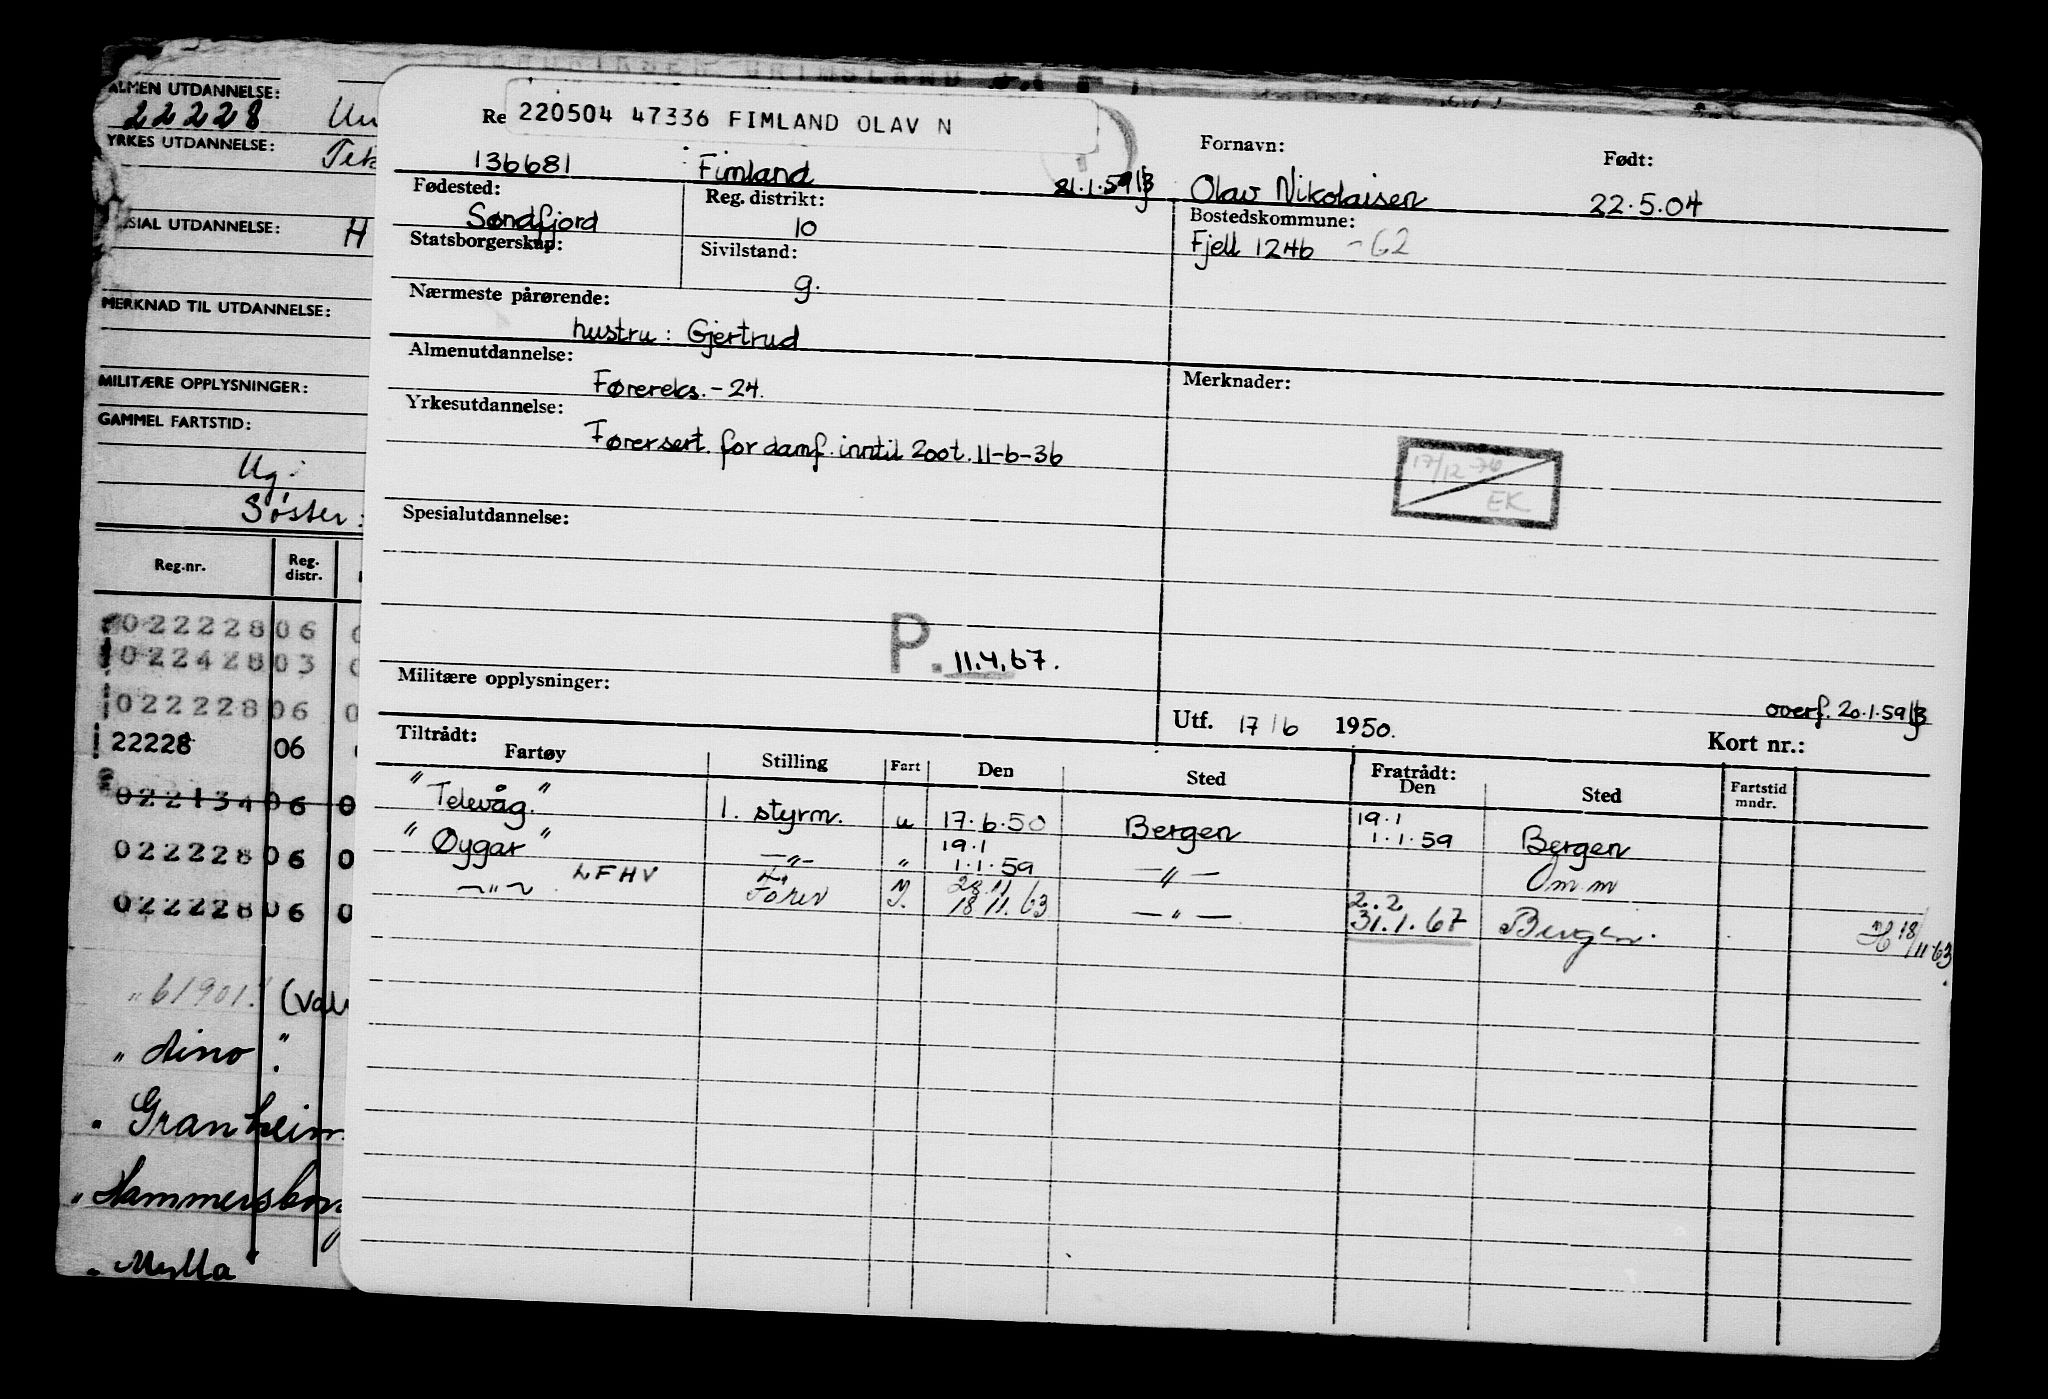 ALMEN UTDANNELSE:
22228
YRKES UTDANNELSE:
UTDANNELSE:
H
MERKNAD TIL UTDANNELSE:
MILITÆRE OPPLYSNINGER:
GAMMEL FARTSTID:
Ug:
Søster:
Reg.nr. Reg. distr.
022228 06 0
022428 03 0
022228 06 0
22228 06
022134 06 0
022228 06 0
022228 06 0
"61901"
"Aino"
"Granheim
"Hammersborg
"Mylla"
Re 220504 47336 FIMLAND OLAV N
Fornavn: Født:
136681 Fimland 21.1.59 Olav Nikolaisen 22.5.04
Fødested: Reg. distrikt: Bostedskommune:
Søndfjord 10 Fjell 1246 -62
Statsborgerskap: Sivilstand:
g.
Nærmeste pårørende:
hustru: Gjertrud
Almenutdannelse: Merknader:
Førereks. - 24.
Yrkesutdannelse:
Førersert. for damf. inntil 200t. 11-6-36
17/12-76
EK
Spesialutdannelse:
P. 11.4.67.
Militære opplysninger:
overf. 20.1.59
Utf. 17/6 1950. Kort nr.:
Tiltrådt: Fratrådt:
Fartøy Stilling Fart Den Sted Den Sted Fartstid mndr.
"Televåg." 1. styrm. u 17.6.50 Bergen 19.1 1.1.59 Bergen
"Øygar" —"— " 19.1 1.1.59 —"— Om.m
—"— LFHV Fører 28.11 18.11.63 —"— 2.2 31.1.67 Bergen. 18/11.63